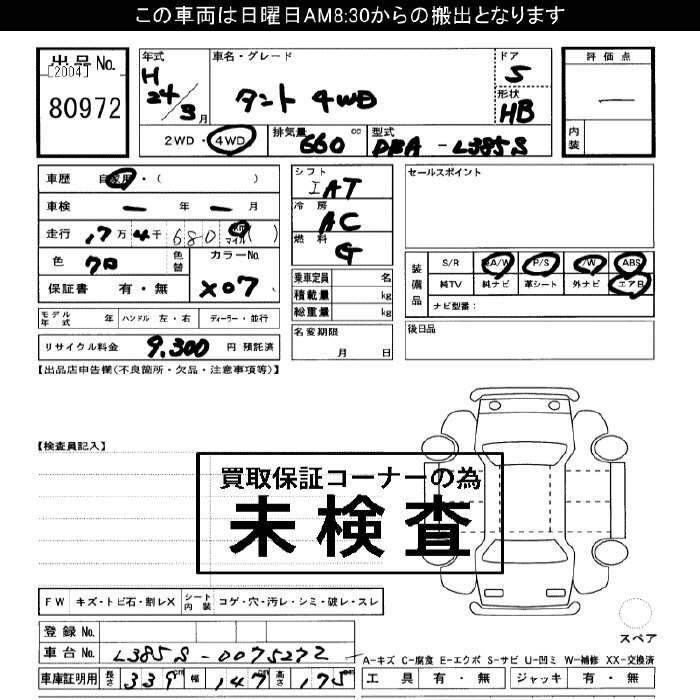 この車両は日曜日AM8:30からの搬出となります
出品No.
[2004]
80972
年式
H
24
3月
車名・グレード
タント 4WD
ドア
5
形状
HB
評価点
内装
2WD・4WD
排気量 660 cc
型式 DBA - L385S
車歴 自家用・( )
車検 ー 年 ー 月
走行 17万4千680 マイル( )
色 クロ 色替
カラーNo.
X07
保証書 有・無
モデル年式 年 ハンドル 左・右 ディーラー・並行
リサイクル料金 9,300 円 預託済
シフト
IAT
冷房
AC
燃料
G
乗車定員 名
積載量 kg
総重量 kg
名変期限
月 日
セールスポイント
装備品
S/R A/W P/S P/W ABS
純TV 純ナビ 革シート 外ナビ エアB
ナビ型番：
後日品
【出品店申告欄(不良箇所・欠品・注意事項等)】
【検査員記入】
買取保証コーナーの為
未検査
FW キズ・トビ石・割レX シート内装 コゲ・穴・汚レ・シミ・破レ・スレ
スペア
登録No.
車台No. L385S-0075272
A-キズ C-腐食 E-エクボ S-サビ U-凹ミ W-補修 XX-交換済
車庫証明用 長さ 339cm 幅 147cm 高さ 175cm
工具 有・無 ジャッキ 有・無